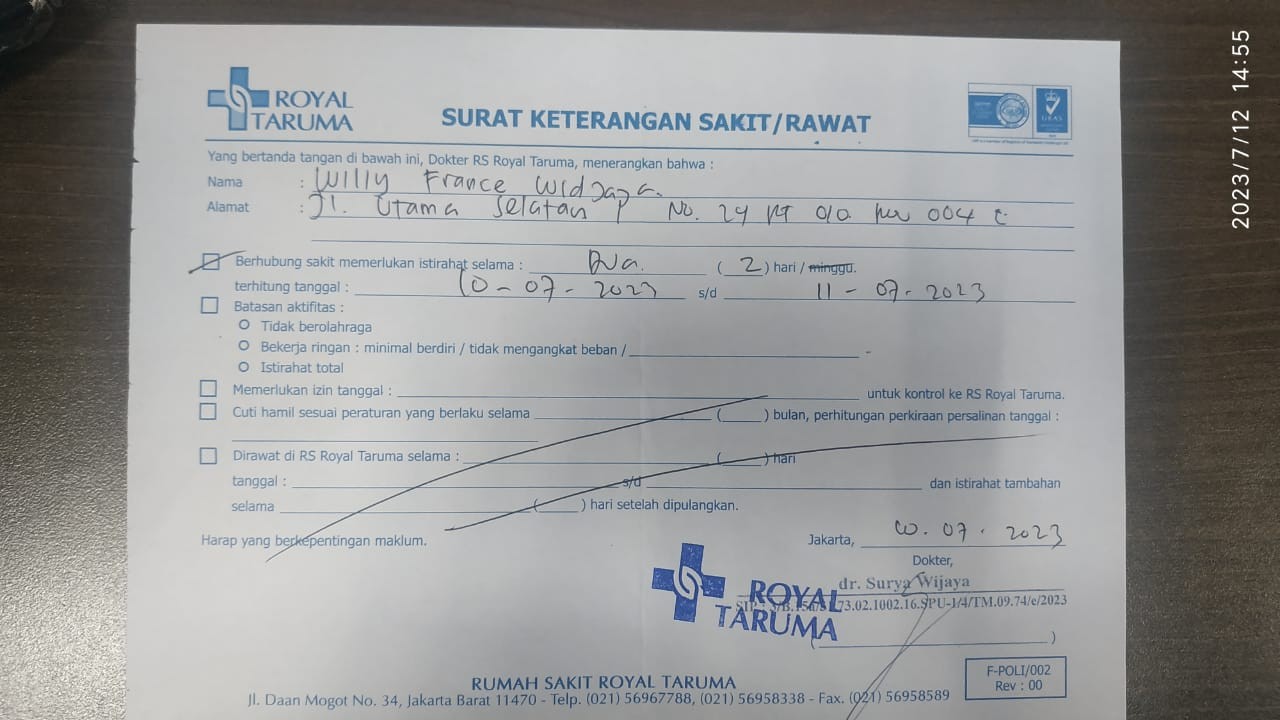 ROYAL
TARUMA
SURAT KETERANGAN SAKIT/RAWAT
UKAS
Yang bertanda tangan di bawah ini, Dokter RS Royal Taruma, menerangkan bahwa :
Nama : Willy France Widjaya.
Alamat : Jl. Utama Selatan No. 24 004
Berhubung sakit memerlukan istirahat selama : Dua. ( 2 ) hari / minggu.
terhitung tanggal : 10 - 07 - 2023 s/d 11 - 07 - 2023
Batasan aktifitas :
Tidak berolahraga
Bekerja ringan : minimal berdiri / tidak mengangkat beban /
Istirahat total
Memerlukan izin tanggal : untuk kontrol ke RS Royal Taruma.
Cuti hamil sesuai peraturan yang berlaku selama ( ) bulan, perhitungan perkiraan persalinan tanggal :
Dirawat di RS Royal Taruma selama : ( ) hari
tanggal : s/d dan istirahat tambahan
selama ( ) hari setelah dipulangkan.
Harap yang berkepentingan maklum.
Jakarta, 10. 07 . 2023
Dokter,
dr. Surya Wijaya
73.02.1002.16.SPU-1/4/TM.09.74/e/2023
ROYAL
TARUMA
( )
RUMAH SAKIT ROYAL TARUMA
Jl. Daan Mogot No. 34, Jakarta Barat 11470 - Telp. (021) 56967788, (021) 56958338 - Fax. (021) 56958589
F-POLI/002
Rev : 00
2023/7/12 14:55